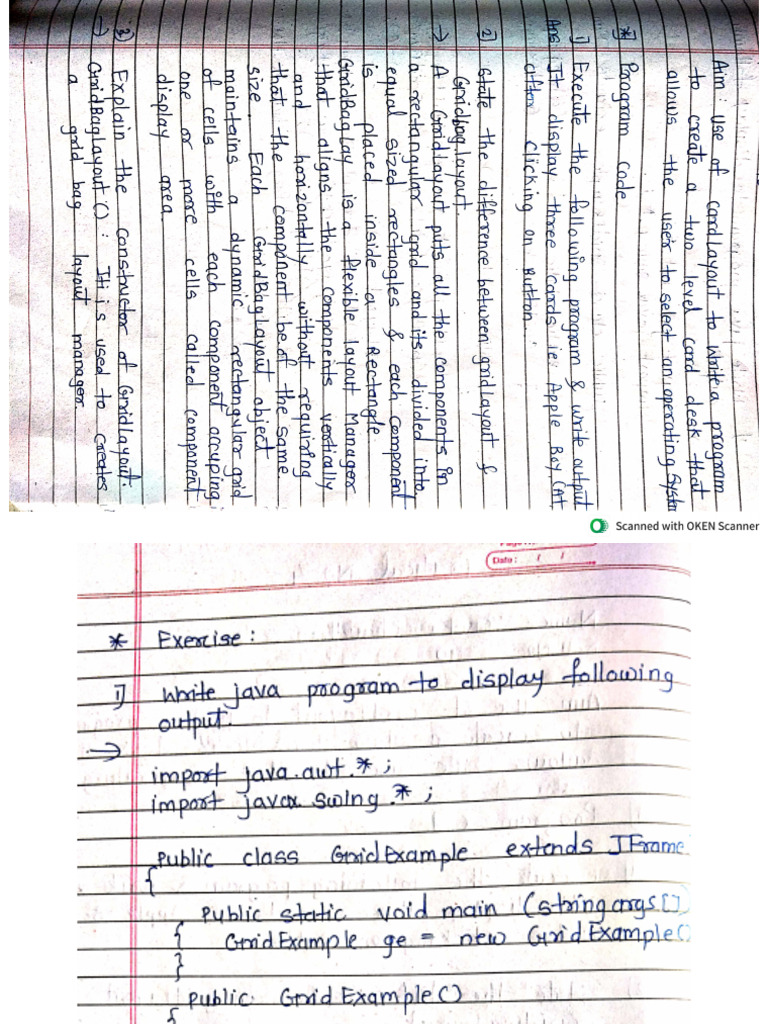 Aim: Use of cardlayout to write a program
to create a two level card desk that
allows the user to select an operating Syste
*] Program code
1] Execute the following program & write output
Ans It display three cards ie. Apple Boy Cat
after clicking on Button.
2] State the difference between gridlayout &
Gridbag layout.
→ A Gridlayout puts all the components in
a rectangular grid and its divided into
equal sized rectangles & each component
is placed inside a Rectangle
GridBagLay is a flexible layout Manager
that aligns the components vertically
and horizontally without requiring
that the component be of the same
size. Each GridBagLayout object
maintains a dynamic rectangular grid
of cells with each component occuping
one or more cells called component
display area
3) Explain the constructor of Gridlayout.
→ GridBagLayout(): It is used to creates
a grid bag layout manager.
Scanned with OKEN Scanner
Date: / /
* Exercise:
1] Write java program to display following
output.
→
import java.awt.*;
import javax.swing.*;
Public class GridExample extends JFrame
{
Public static void main (string args[]
{ GridExample ge = new GridExample()
}
}
Public GridExample()
{